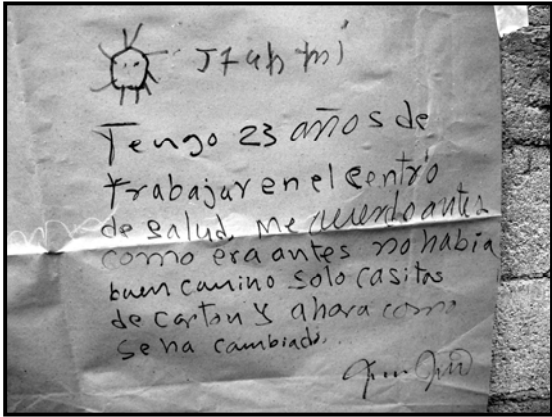 Tengo 23 años de
trabajar en el centro
de salud, me acuerdo antes
como era antes no había
buen camino solo casitas
de carton y ahora como
se ha cambiado..